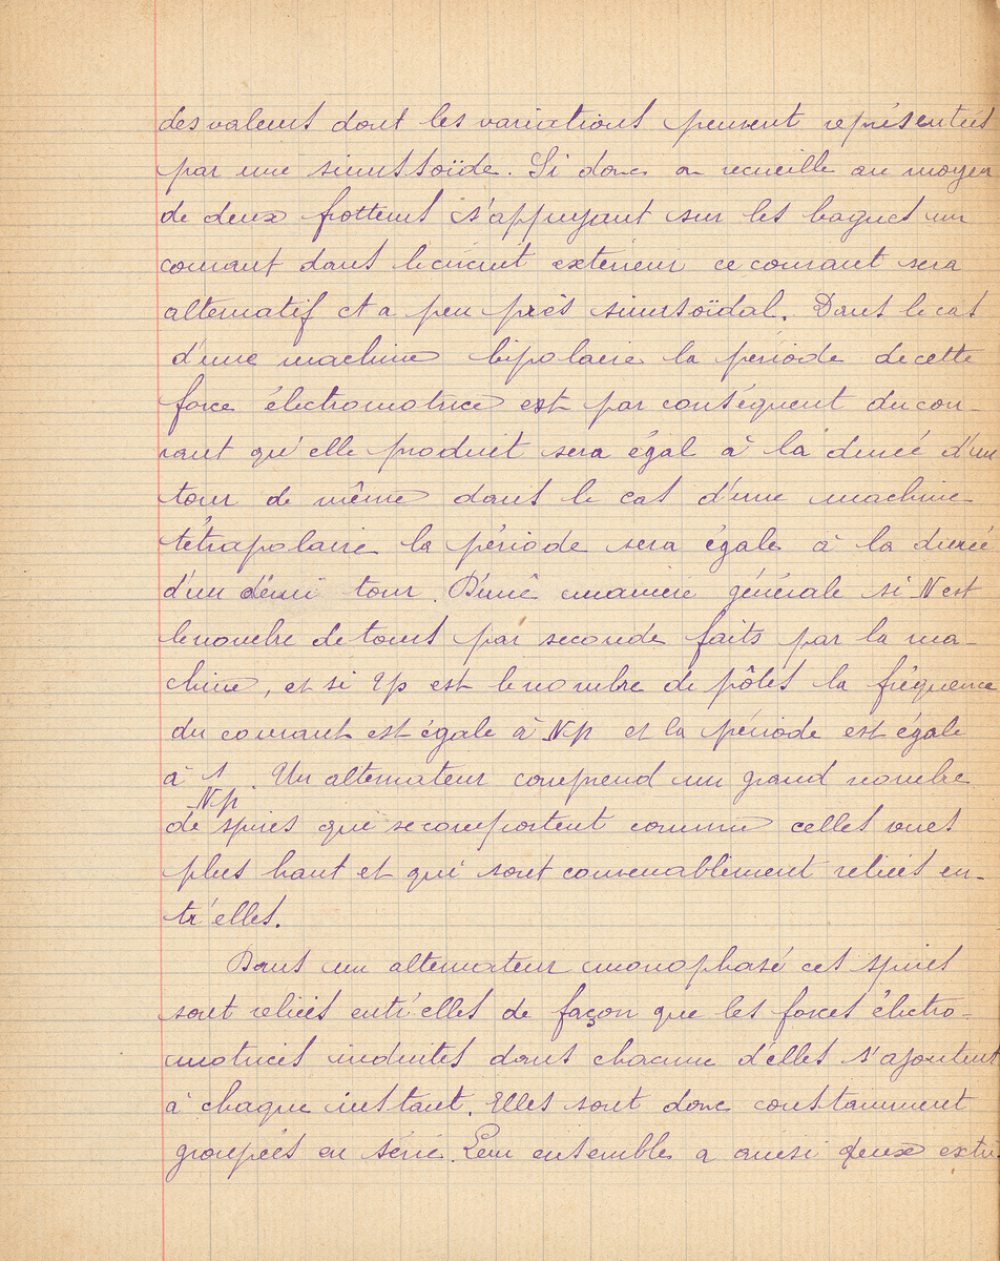 des valeurs dont les variations peuvent représentées
par une sinussoïde. Si donc on recueille au moyen
de deux frotteurs s'appuyant sur les bagues un
courant dans le circuit extérieur ce courant sera
alternatif et a peu près sinusoïdal. Dans le cas
d'une machine bipolaire la période de cette
force électromotrice est par conséquent du cou-
rant qu'elle produit sera égal à la durée d'un
tour de même dans le cas d'une machine
tétrapolaire la période sera égale à la durée
d'un démi tour. D'une manière générale si N est
le nombre de tours par seconde faits par la ma-
chine, et si 2p est le nombre de pôles la fréquence
du courant est égale à Np et la période est égale
à 1/Np. Un alternateur comprend un grand nombre
de spires que se comportent comme celles vues
plus haut et qui sont convenablement reliées en-
tr'elles.
Dans un alternateur monophasé ces spires
sont reliées entr'elles de façon que les forces électro-
motrices induites dans chacune d'elles s'ajoutent
à chaque instant. Elles sont donc constamment
groupées en série. Leur ensemble a ainsi deux extré